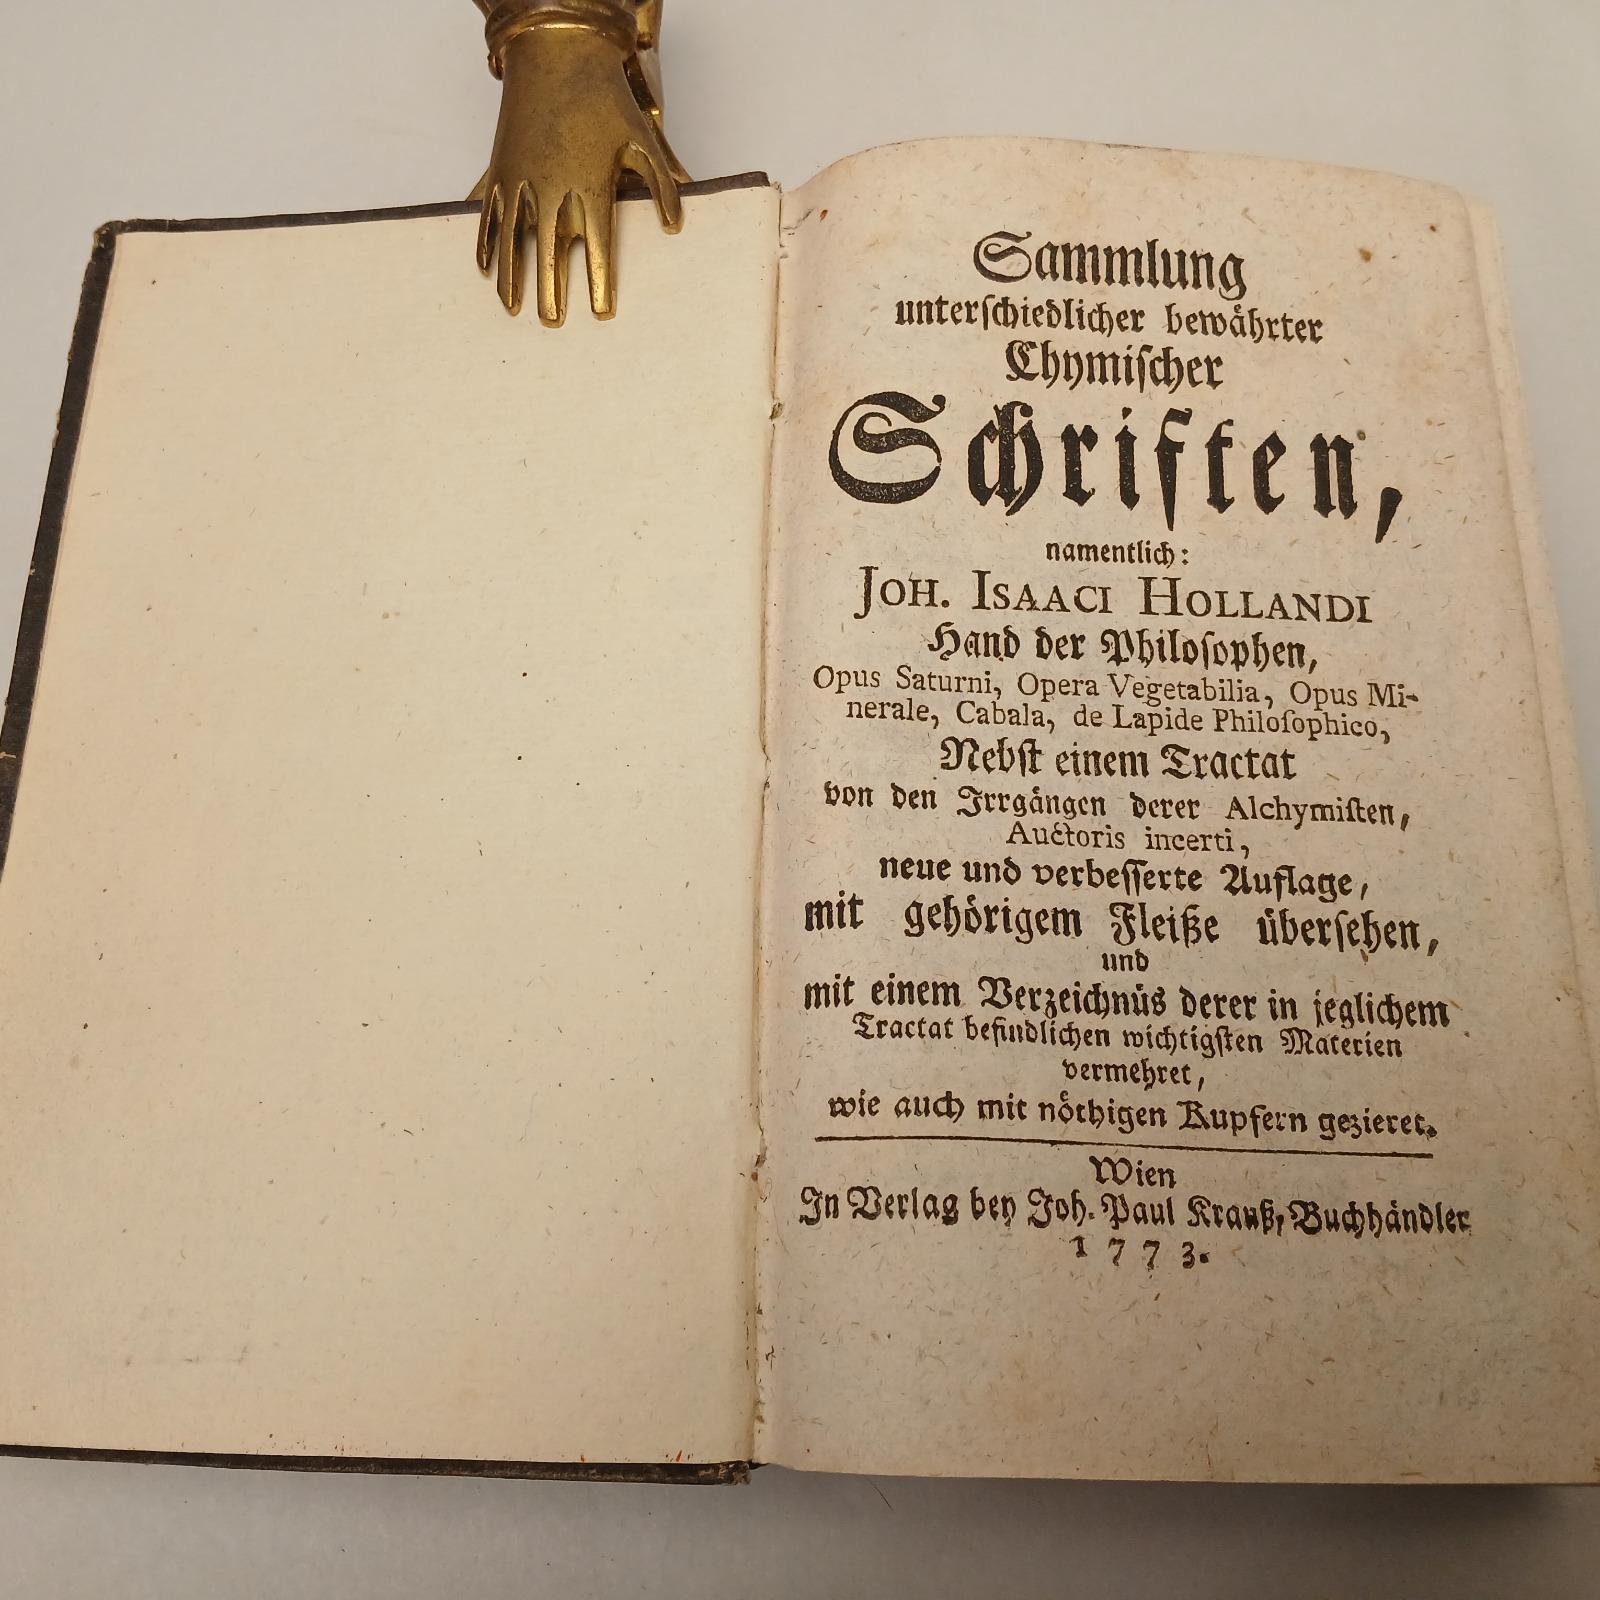 Sammlung
unterſchiedlicher bewåhrter
Chymiſcher
Schriften,
namentlich:
JOH. ISAACI HOLLANDI
Hand der Philoſophen,
Opus Saturni, Opera Vegetabilia, Opus Mi-
nerale, Cabala, de Lapide Philoſophico,
Nebſt einem Tractat
von den Irrgången derer Alchymiſten,
Auctoris incerti,
neue und verbeſſerte Auflage,
mit gehörigem Fleiße überſehen,
und
mit einem Verzeichnüs derer in jeglichem
Tractat befindlichen wichtigſten Materien
vermehret,
wie auch mit nöthigen Kupfern gezieret.
Wien
In Verlag bey Joh. Paul Krauß, Buchhåndler
1773.